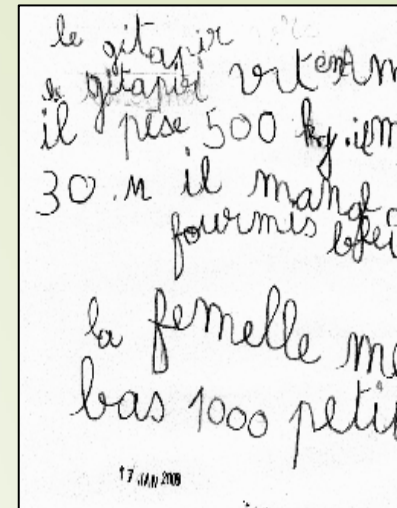 le gitapir
le gitapir vit en
il pèse 500 kg. il m
30. m il mange
fourmis
la femelle me
bas 1000 petit
17 JAN 2009